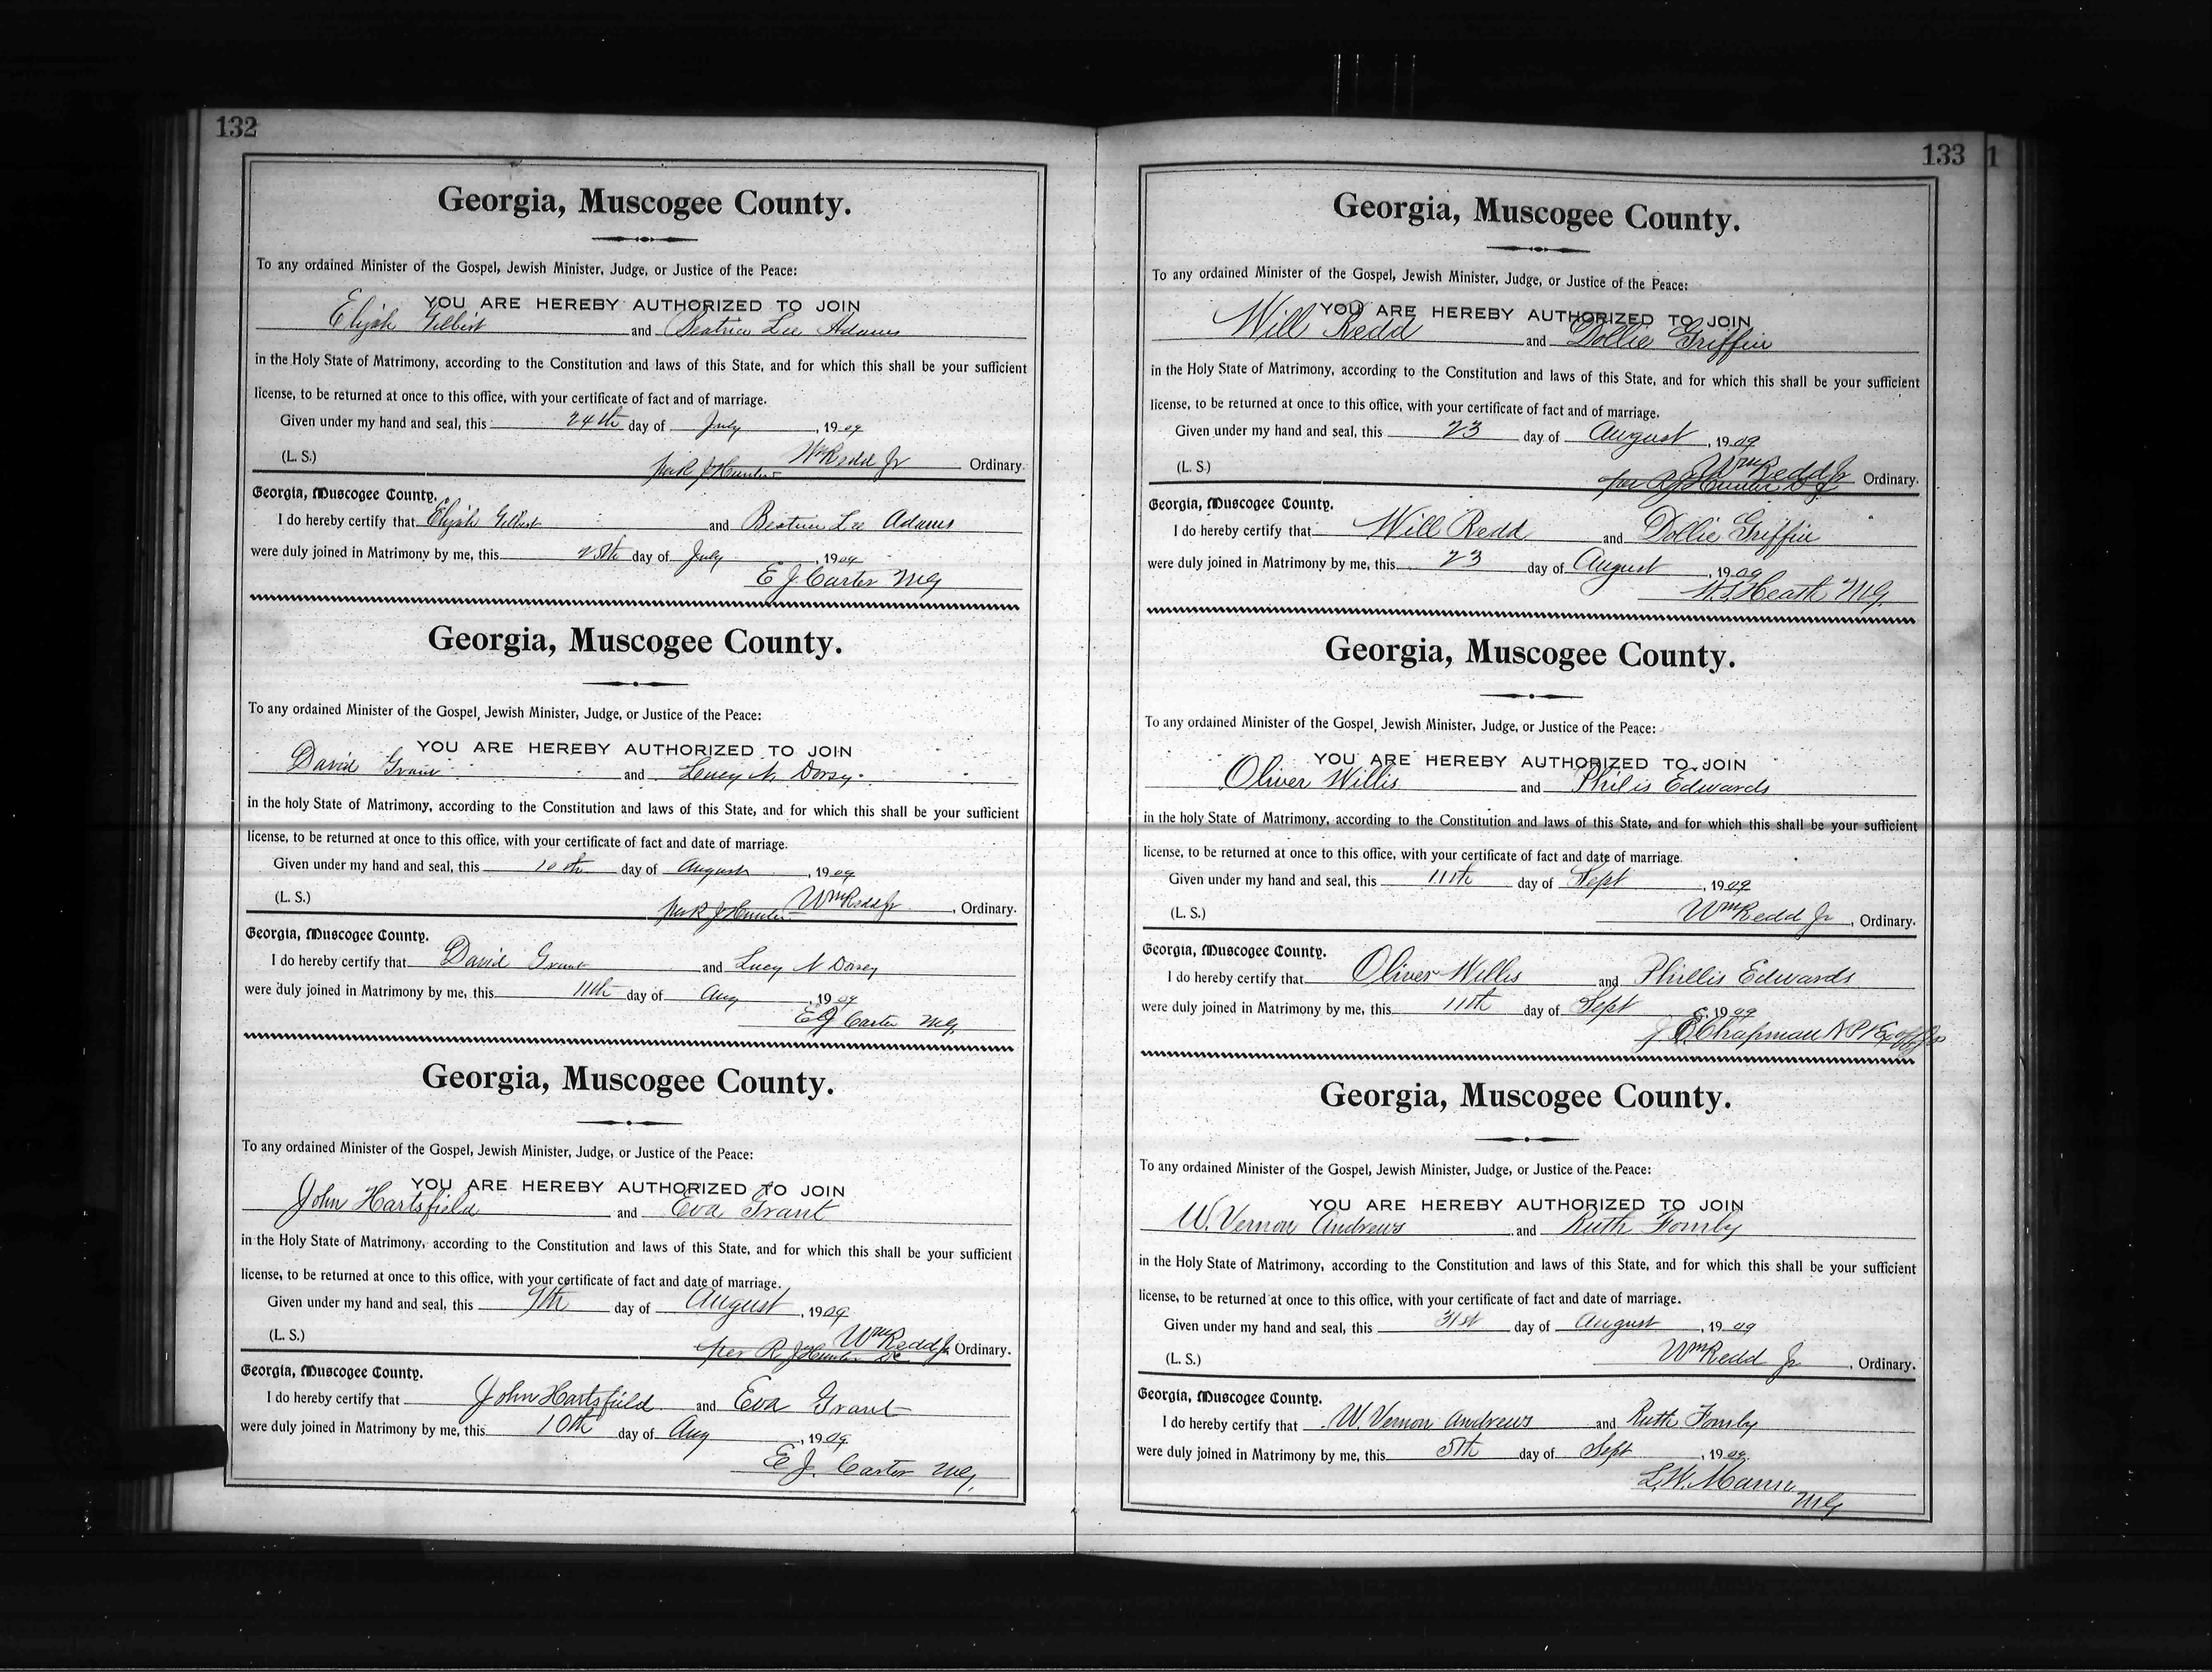 132
Georgia, Muscogee County.
To any ordained Minister of the Gospel, Jewish Minister, Judge, or Justice of the Peace:
YOU ARE HEREBY AUTHORIZED TO JOIN
Elijah Gilbert and Beatrice Lee Adams
in the Holy State of Matrimony, according to the Constitution and laws of this State, and for which this shall be your sufficient
license, to be returned at once to this office, with your certificate of fact and of marriage.
Given under my hand and seal, this 24th day of July, 1909
(L. S.) Wm Redd Jr Ordinary.
per R J Hunter
Georgia, Muscogee County.
I do hereby certify that Elijah Gilbert and Beatrice Lee Adams
were duly joined in Matrimony by me, this 25th day of July, 1909
E J Carter MG
Georgia, Muscogee County.
To any ordained Minister of the Gospel, Jewish Minister, Judge, or Justice of the Peace:
YOU ARE HEREBY AUTHORIZED TO JOIN
David Grant and Lucy N. Dorsy
in the holy State of Matrimony, according to the Constitution and laws of this State, and for which this shall be your sufficient
license, to be returned at once to this office, with your certificate of fact and date of marriage.
Given under my hand and seal, this 10th day of August, 1909
(L. S.) Wm Redd Jr, Ordinary.
per R J Hunter
Georgia, Muscogee County.
I do hereby certify that David Grant and Lucy N Dorsey
were duly joined in Matrimony by me, this 11th day of Aug, 1909
E J Carter MG
Georgia, Muscogee County.
To any ordained Minister of the Gospel, Jewish Minister, Judge, or Justice of the Peace:
YOU ARE HEREBY AUTHORIZED TO JOIN
John Hartsfield and Eva Grant
in the Holy State of Matrimony, according to the Constitution and laws of this State, and for which this shall be your sufficient
license, to be returned at once to this office, with your certificate of fact and date of marriage.
Given under my hand and seal, this 9th day of August, 1909
(L. S.) Wm Redd Jr Ordinary.
per R J Hunter DC
Georgia, Muscogee County.
I do hereby certify that John Hartsfield and Eva Grant
were duly joined in Matrimony by me, this 10th day of Aug, 1909
E. J. Carter MG.
133 1
Georgia, Muscogee County.
To any ordained Minister of the Gospel, Jewish Minister, Judge, or Justice of the Peace:
YOU ARE HEREBY AUTHORIZED TO JOIN
Will Redd and Dollie Griffin
in the Holy State of Matrimony, according to the Constitution and laws of this State, and for which this shall be your sufficient
license, to be returned at once to this office, with your certificate of fact and of marriage.
Given under my hand and seal, this 23 day of August, 1909
(L. S.) Wm Redd Jr Ordinary.
per R J Hunter
Georgia, Muscogee County.
I do hereby certify that Will Redd and Dollie Griffin
were duly joined in Matrimony by me, this 23 day of August, 1909
Heath MG.
Georgia, Muscogee County.
To any ordained Minister of the Gospel, Jewish Minister, Judge, or Justice of the Peace:
YOU ARE HEREBY AUTHORIZED TO JOIN
Oliver Willis and Philis Edwards
in the holy State of Matrimony, according to the Constitution and laws of this State, and for which this shall be your sufficient
license, to be returned at once to this office, with your certificate of fact and date of marriage.
Given under my hand and seal, this 11th day of Sept, 1909
(L. S.) Wm Redd Jr, Ordinary.
Georgia, Muscogee County.
I do hereby certify that Oliver Willis and Phillis Edwards
were duly joined in Matrimony by me, this 11th day of Sept, 1909
Chapman NP
Georgia, Muscogee County.
To any ordained Minister of the Gospel, Jewish Minister, Judge, or Justice of the Peace:
YOU ARE HEREBY AUTHORIZED TO JOIN
W. Vernon Andrews and Ruth
in the Holy State of Matrimony, according to the Constitution and laws of this State, and for which this shall be your sufficient
license, to be returned at once to this office, with your certificate of fact and date of marriage.
Given under my hand and seal, this 31st day of August, 1909
(L. S.) Wm Redd Jr, Ordinary.
Georgia, Muscogee County.
I do hereby certify that W. Vernon Andrews and Ruth
were duly joined in Matrimony by me, this 5th day of Sept, 1909
L.W.
MG